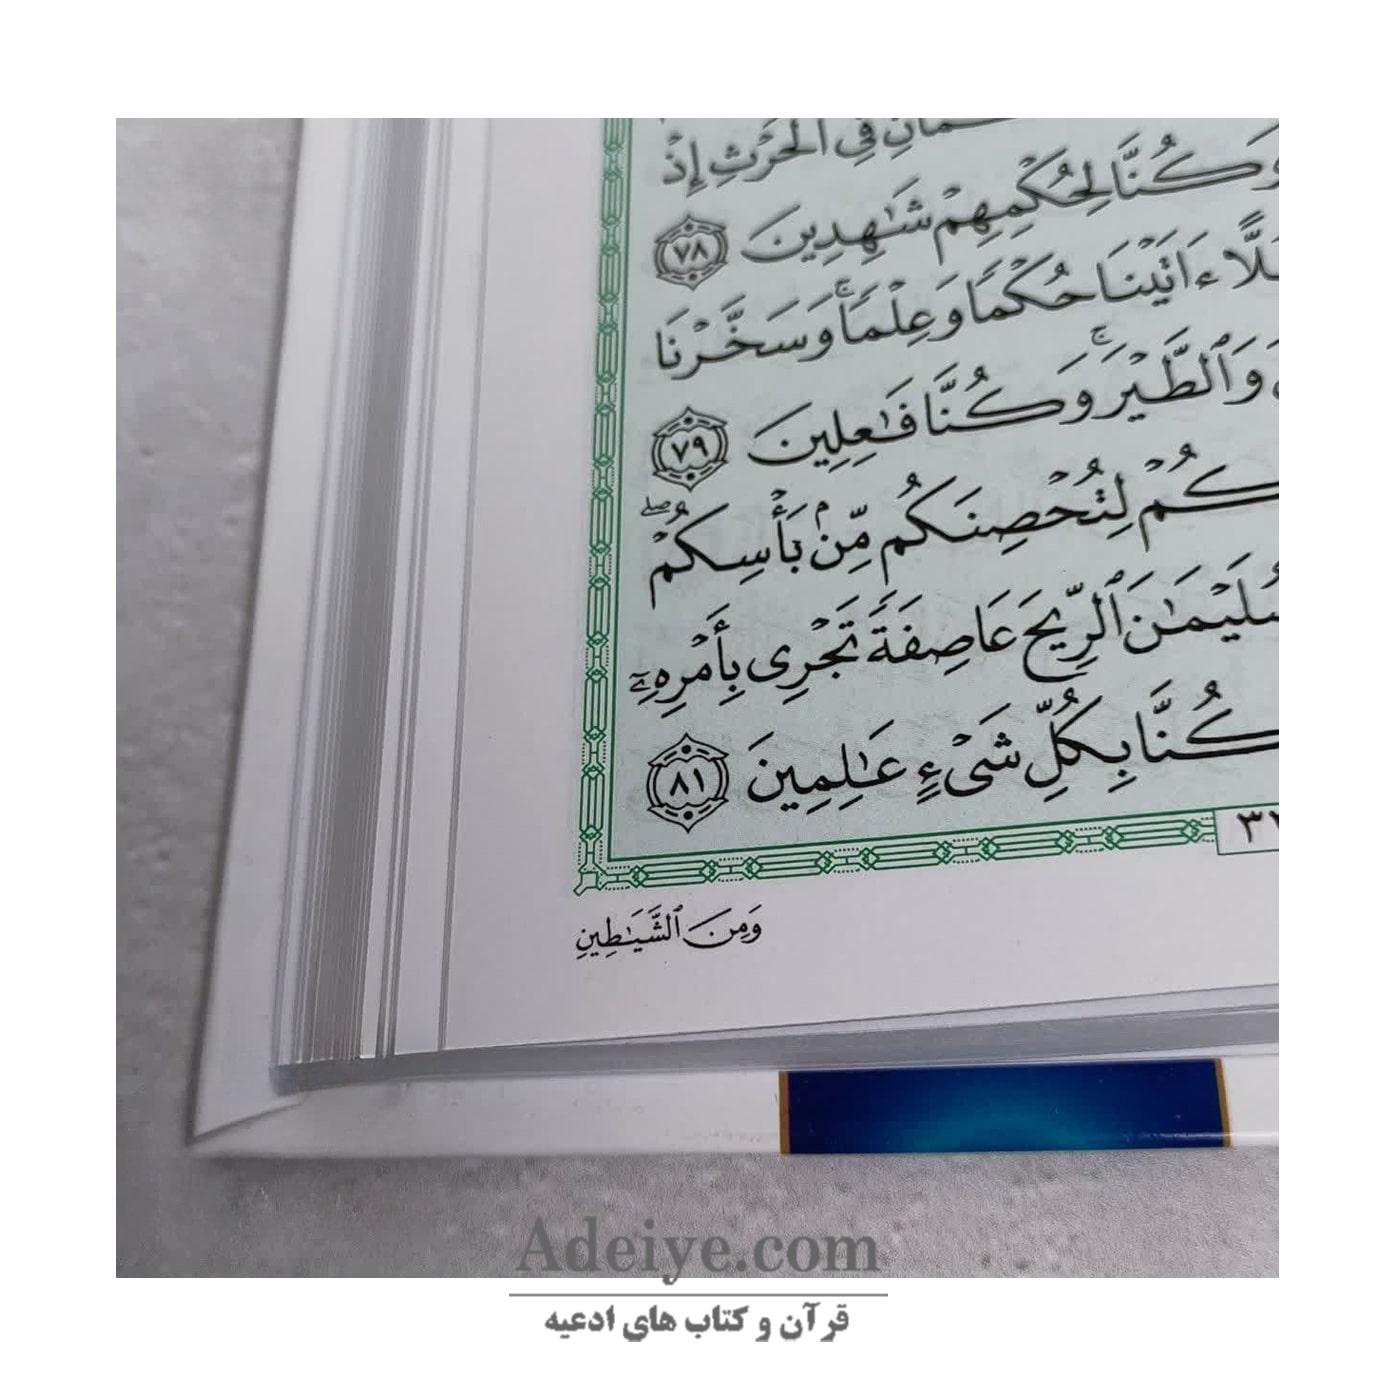 فِي الْحَرْثِ إِذْ
وَكُنَّا لِحُكْمِهِمْ شَٰهِدِينَ ٧٨
ءَاتَيْنَا حُكْمًا وَعِلْمًا ۚ وَسَخَّرْنَا
وَٱلطَّيْرَ ۚ وَكُنَّا فَٰعِلِينَ ٧٩
لِتُحْصِنَكُم مِّنۢ بَأْسِكُمْ ۖ
ٱلرِّيحَ عَاصِفَةً تَجْرِى بِأَمْرِهِۦٓ
كُنَّا بِكُلِّ شَىْءٍ عَٰلِمِينَ ٨١
وَمِنَ ٱلشَّيَٰطِينِ
Adeiye.com
قرآن و کتاب های ادعیه